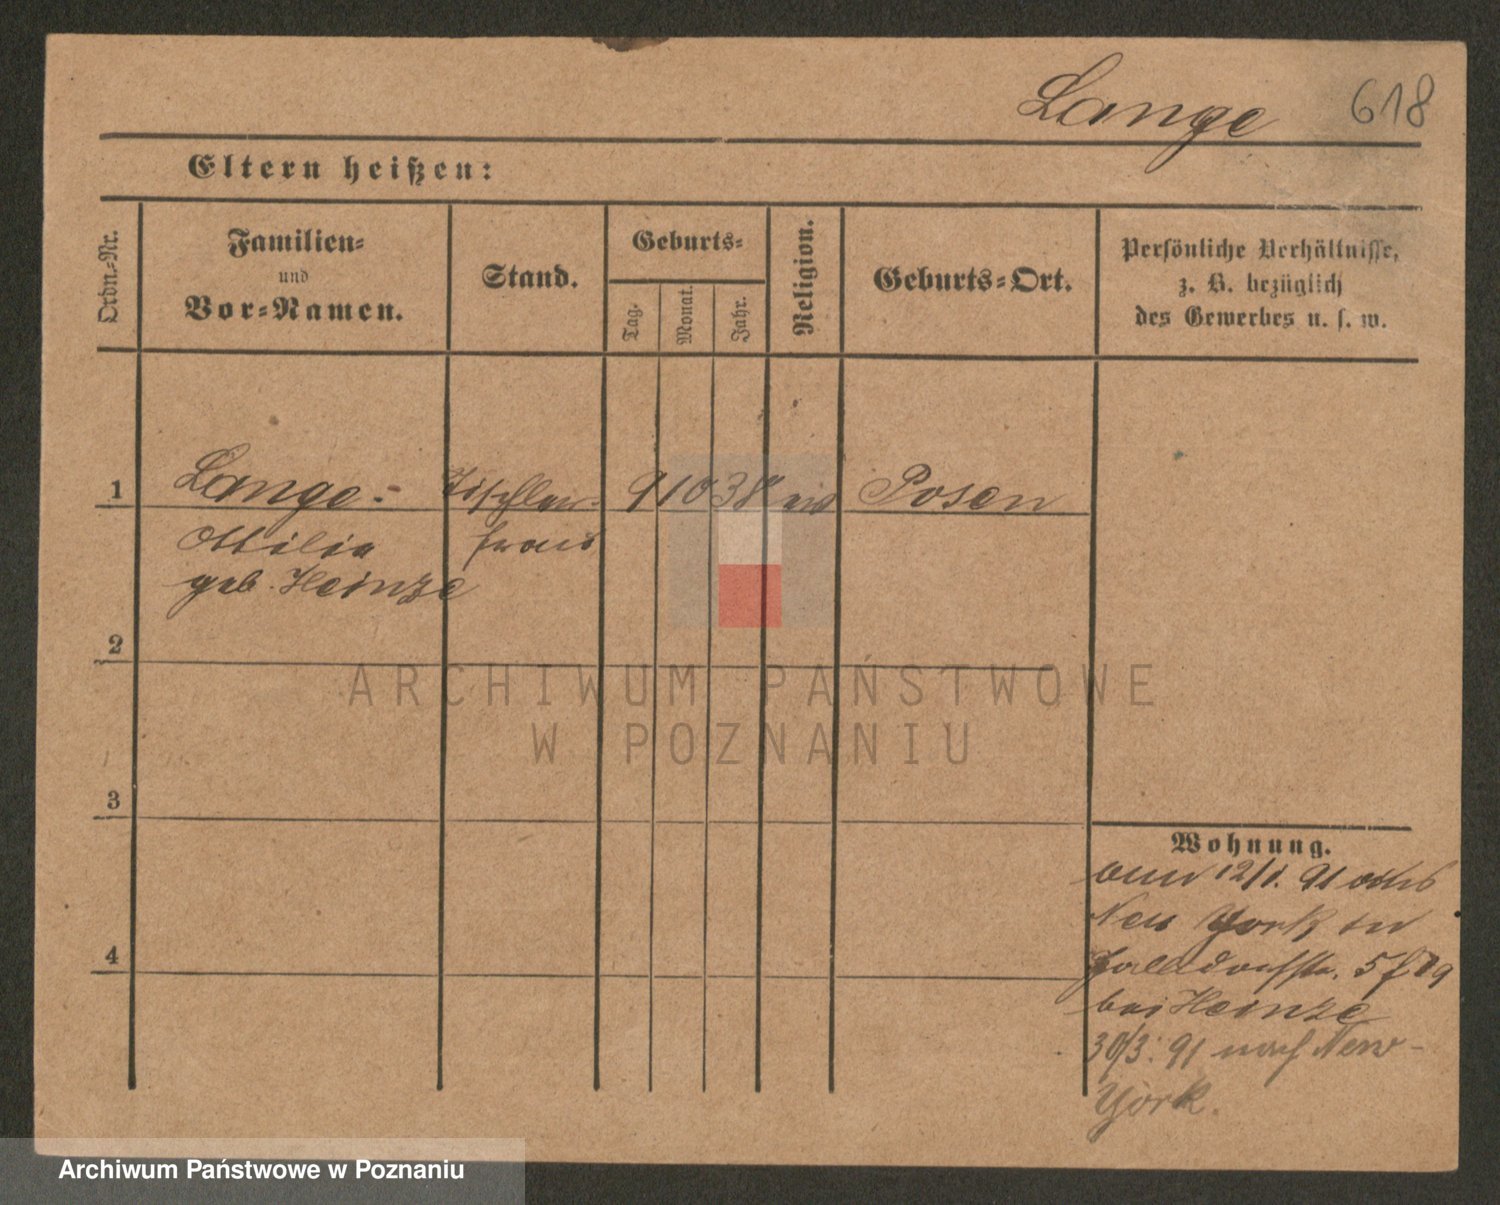 Lange 618
Eltern heißen:
Ordn.-Nr.
Familien-
und
Vor-Namen.
Stand.
Geburts-
Tag.
Monat.
Jahr.
Religion.
Geburts-Ort.
Persönliche Verhältnisse,
z. B. bezüglich
des Gewerbes u. s. w.
1 Lange Tischler- 9 10 38 Posen
Ottilie frau
geb. Heinze
2
ARCHIWUM PAŃSTWOWE
W POZNANIU
3
Wohnung.
12/1. 91 aus
New York in
4
bei Heinze
30/3. 91 nach New-
York.
Archiwum Państwowe w Poznaniu